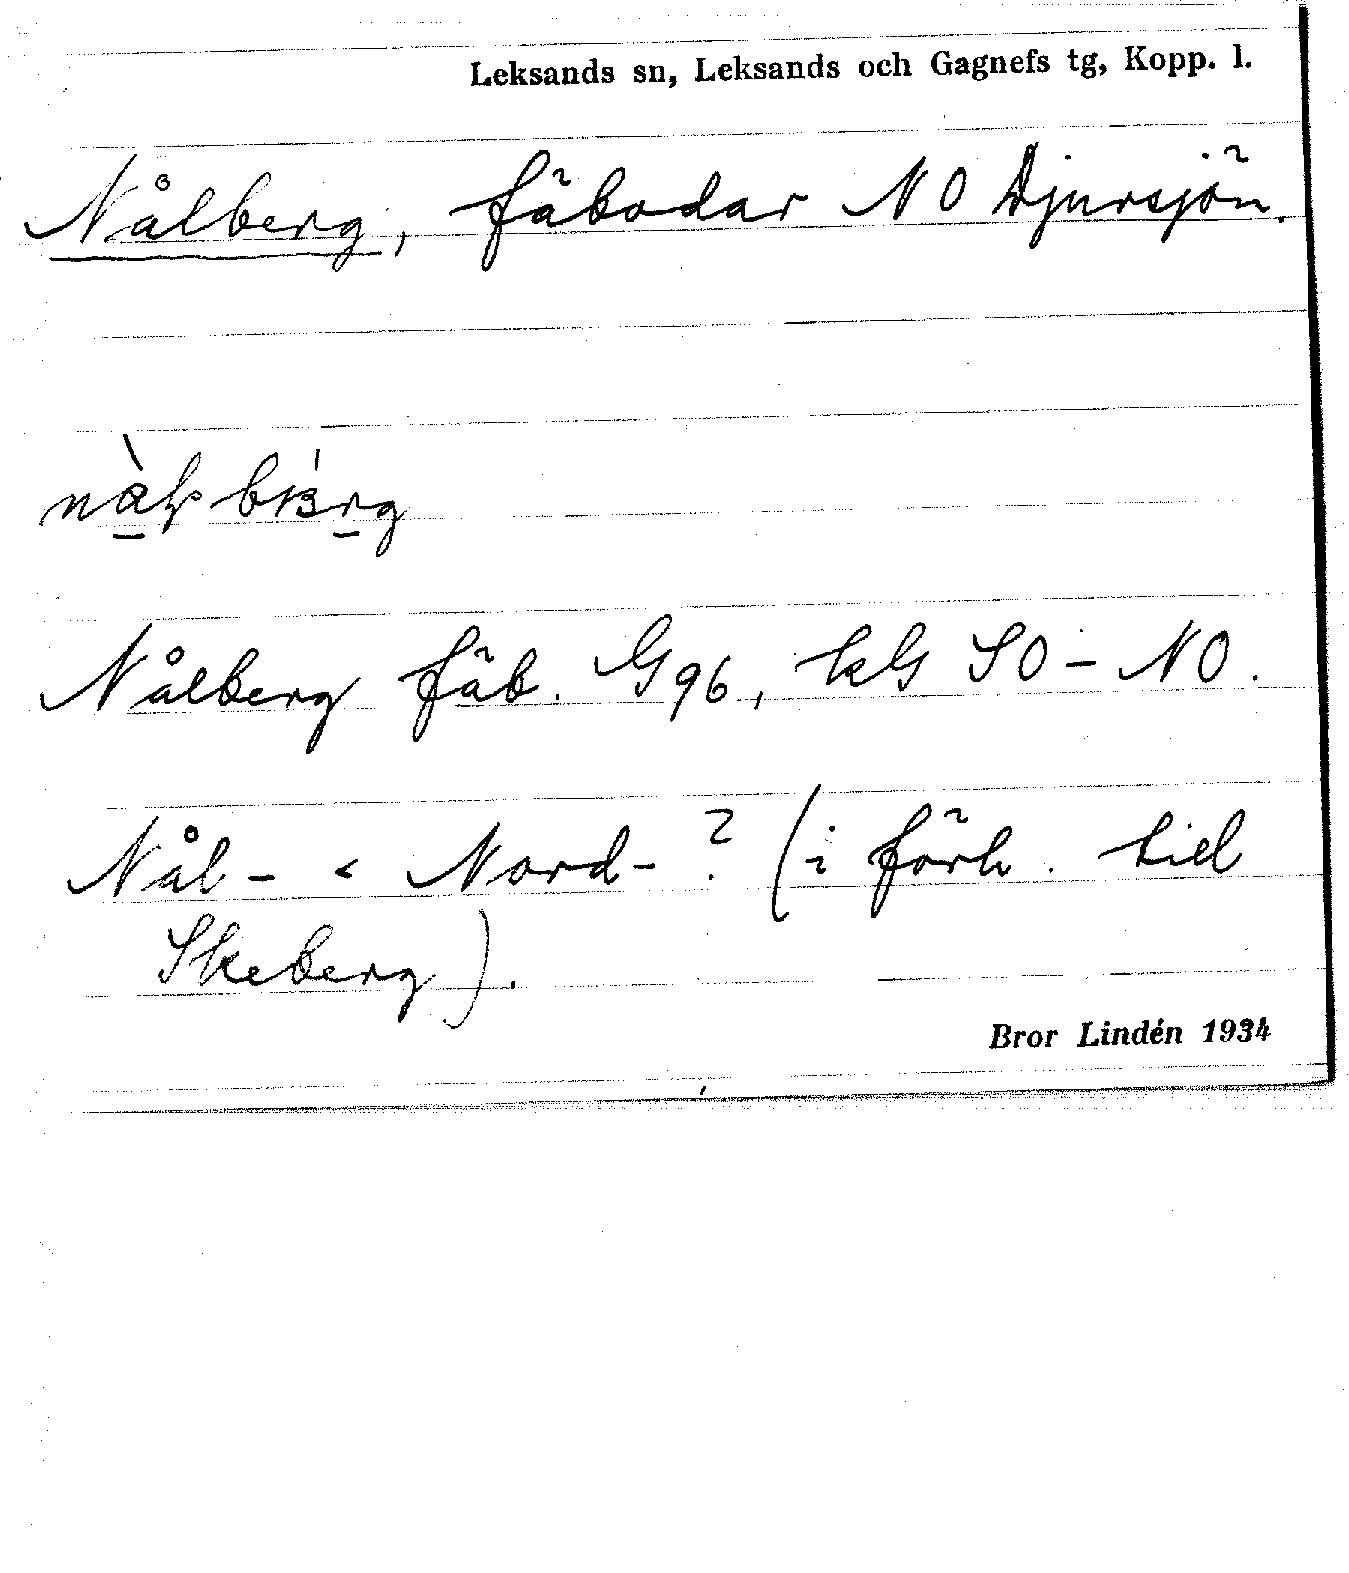 Leksands sn, Leksands och Gagnefs tg, Kopp. l.
Nålberg, fäbodar NO Djursjön.
Nålberg fäb. G96, kG SO – NO.
Nål- < Nord- ? (i förh. till
Skeberg).
Bror Lindén 1934